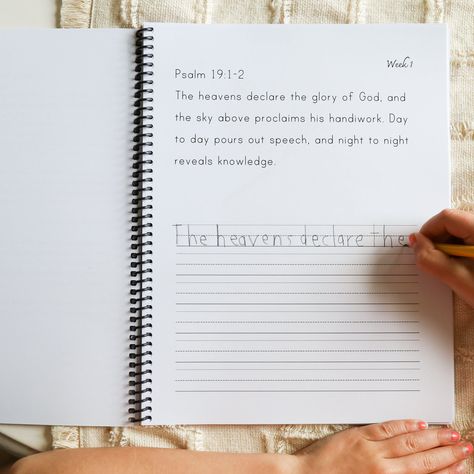 Week 1
Psalm 19:1-2
The heavens declare the glory of God, and
the sky above proclaims his handiwork. Day
to day pours out speech, and night to night
reveals knowledge.
The heavens declare the